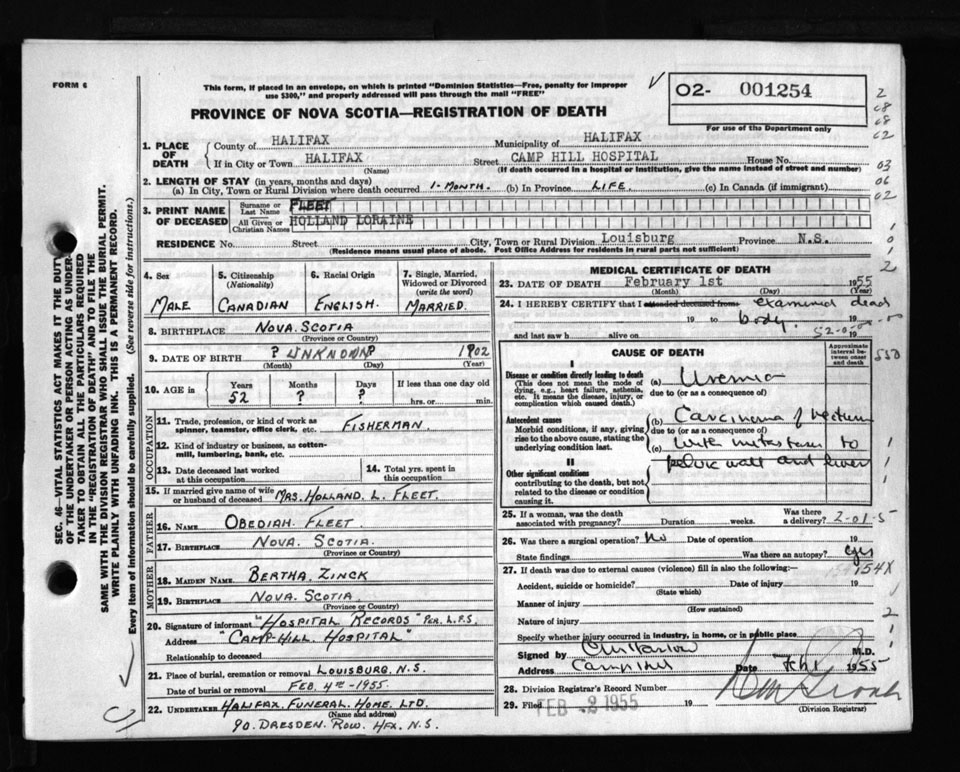 FORM 6
This form, if placed in an envelope, on which is printed "Dominion Statistics—Free, penalty for improper
use $300," and properly addressed will pass through the mail "FREE"
O2- 001254
For use of the Department only
PROVINCE OF NOVA SCOTIA—REGISTRATION OF DEATH
1. PLACE OF DEATH
County of HALIFAX Municipality of HALIFAX
If in City or Town HALIFAX Street CAMP HILL HOSPITAL House No.
(Name) (If death occurred in a hospital or institution, give the name instead of street and number)
2. LENGTH OF STAY (in years, months and days)
(a) In City, Town or Rural Division where death occurred 1-MONTH. (b) In Province LIFE. (c) In Canada (if immigrant)
3. PRINT NAME OF DECEASED
Surname or Last Name FLEET
All Given or Christian Names HOLLAND LORAINE
RESIDENCE No. Street City, Town or Rural Division Louisburg Province N.S.
(Residence means usual place of abode. Post Office Address for residents in rural parts not sufficient)
4. Sex MALE
5. Citizenship (Nationality) CANADIAN
6. Racial Origin ENGLISH.
7. Single, Married, Widowed or Divorced (write the word) MARRIED.
8. BIRTHPLACE NOVA SCOTIA
(Province or Country)
9. DATE OF BIRTH ? UNKNOWN? 1902
(Month) (Day) (Year)
10. AGE in Years 52 Months ? Days ? If less than one day old hrs. or min.
OCCUPATION
11. Trade, profession, or kind of work as spinner, teamster, office clerk, etc. FISHERMAN.
12. Kind of industry or business, as cotton-mill, lumbering, bank, etc.
13. Date deceased last worked at this occupation
14. Total yrs. spent in this occupation
15. If married give name of wife or husband of deceased MRS. HOLLAND L. FLEET.
FATHER
16. NAME OBEDIAH. FLEET.
17. BIRTHPLACE NOVA. SCOTIA.
(Province or Country)
MOTHER
18. MAIDEN NAME BERTHA. ZINCK
19. BIRTHPLACE NOVA. SCOTIA.
(Province or Country)
20. Signature of informant "HOSPITAL RECORDS" PER. L.P.S.
Address "CAMP-HILL. HOSPITAL"
Relationship to deceased
21. Place of burial, cremation or removal LOUISBURG, N.S.
Date of burial or removal FEB. 4TH-1955.
22. UNDERTAKER HALIFAX. FUNERAL. HOME. LTD.
(Name and address)
90. DRESDEN. ROW. HFX. N.S.
MEDICAL CERTIFICATE OF DEATH
23. DATE OF DEATH February 1st 1955
(Month) (Day) (Year)
24. I HEREBY CERTIFY that I attended deceased from examined dead
19 to body. 19
and last saw h alive on 19
CAUSE OF DEATH
Approximate interval between onset and death
I
Disease or condition directly leading to death (a) Uremia
(This does not mean the mode of dying, e.g., heart failure, asthenia, etc. It means the disease, injury, or complication which caused death.) due to (or as a consequence of)
Antecedent causes (b) Carcinoma of rectum
Morbid conditions, if any, giving rise to the above cause, stating the underlying condition last. due to (or as a consequence of)
(c) with metastases to
pelvic wall and liver
II
Other significant conditions contributing to the death, but not related to the disease or condition causing it.
25. If a woman, was the death associated with pregnancy? Duration weeks. Was there a delivery? 2-01-5
26. Was there a surgical operation? No Date of operation 19
State findings Was there an autopsy? Yes
27. If death was due to external causes (violence) fill in also the following:— 154X
Accident, suicide or homicide? Date of injury 19
(State which)
Manner of injury
(How sustained)
Nature of injury
Specify whether injury occurred in industry, in home, or in public place
Signed by M.D.
Address Camp Hill Date Feb 1 1955
28. Division Registrar's Record Number
29. Filed FEB 2 1955 19
(Division Registrar)
SEC. 46—VITAL STATISTICS ACT MAKES IT THE DUTY
OF THE UNDERTAKER OR PERSON ACTING AS UNDER-
TAKER TO OBTAIN ALL THE PARTICULARS REQUIRED
IN THE "REGISTRATION OF DEATH" AND TO FILE THE
SAME WITH THE DIVISION REGISTRAR WHO SHALL ISSUE THE BURIAL PERMIT.
WRITE PLAINLY WITH UNFADING INK. THIS IS A PERMANENT RECORD.
Every item of information should be carefully supplied. (See reverse side for instructions.)